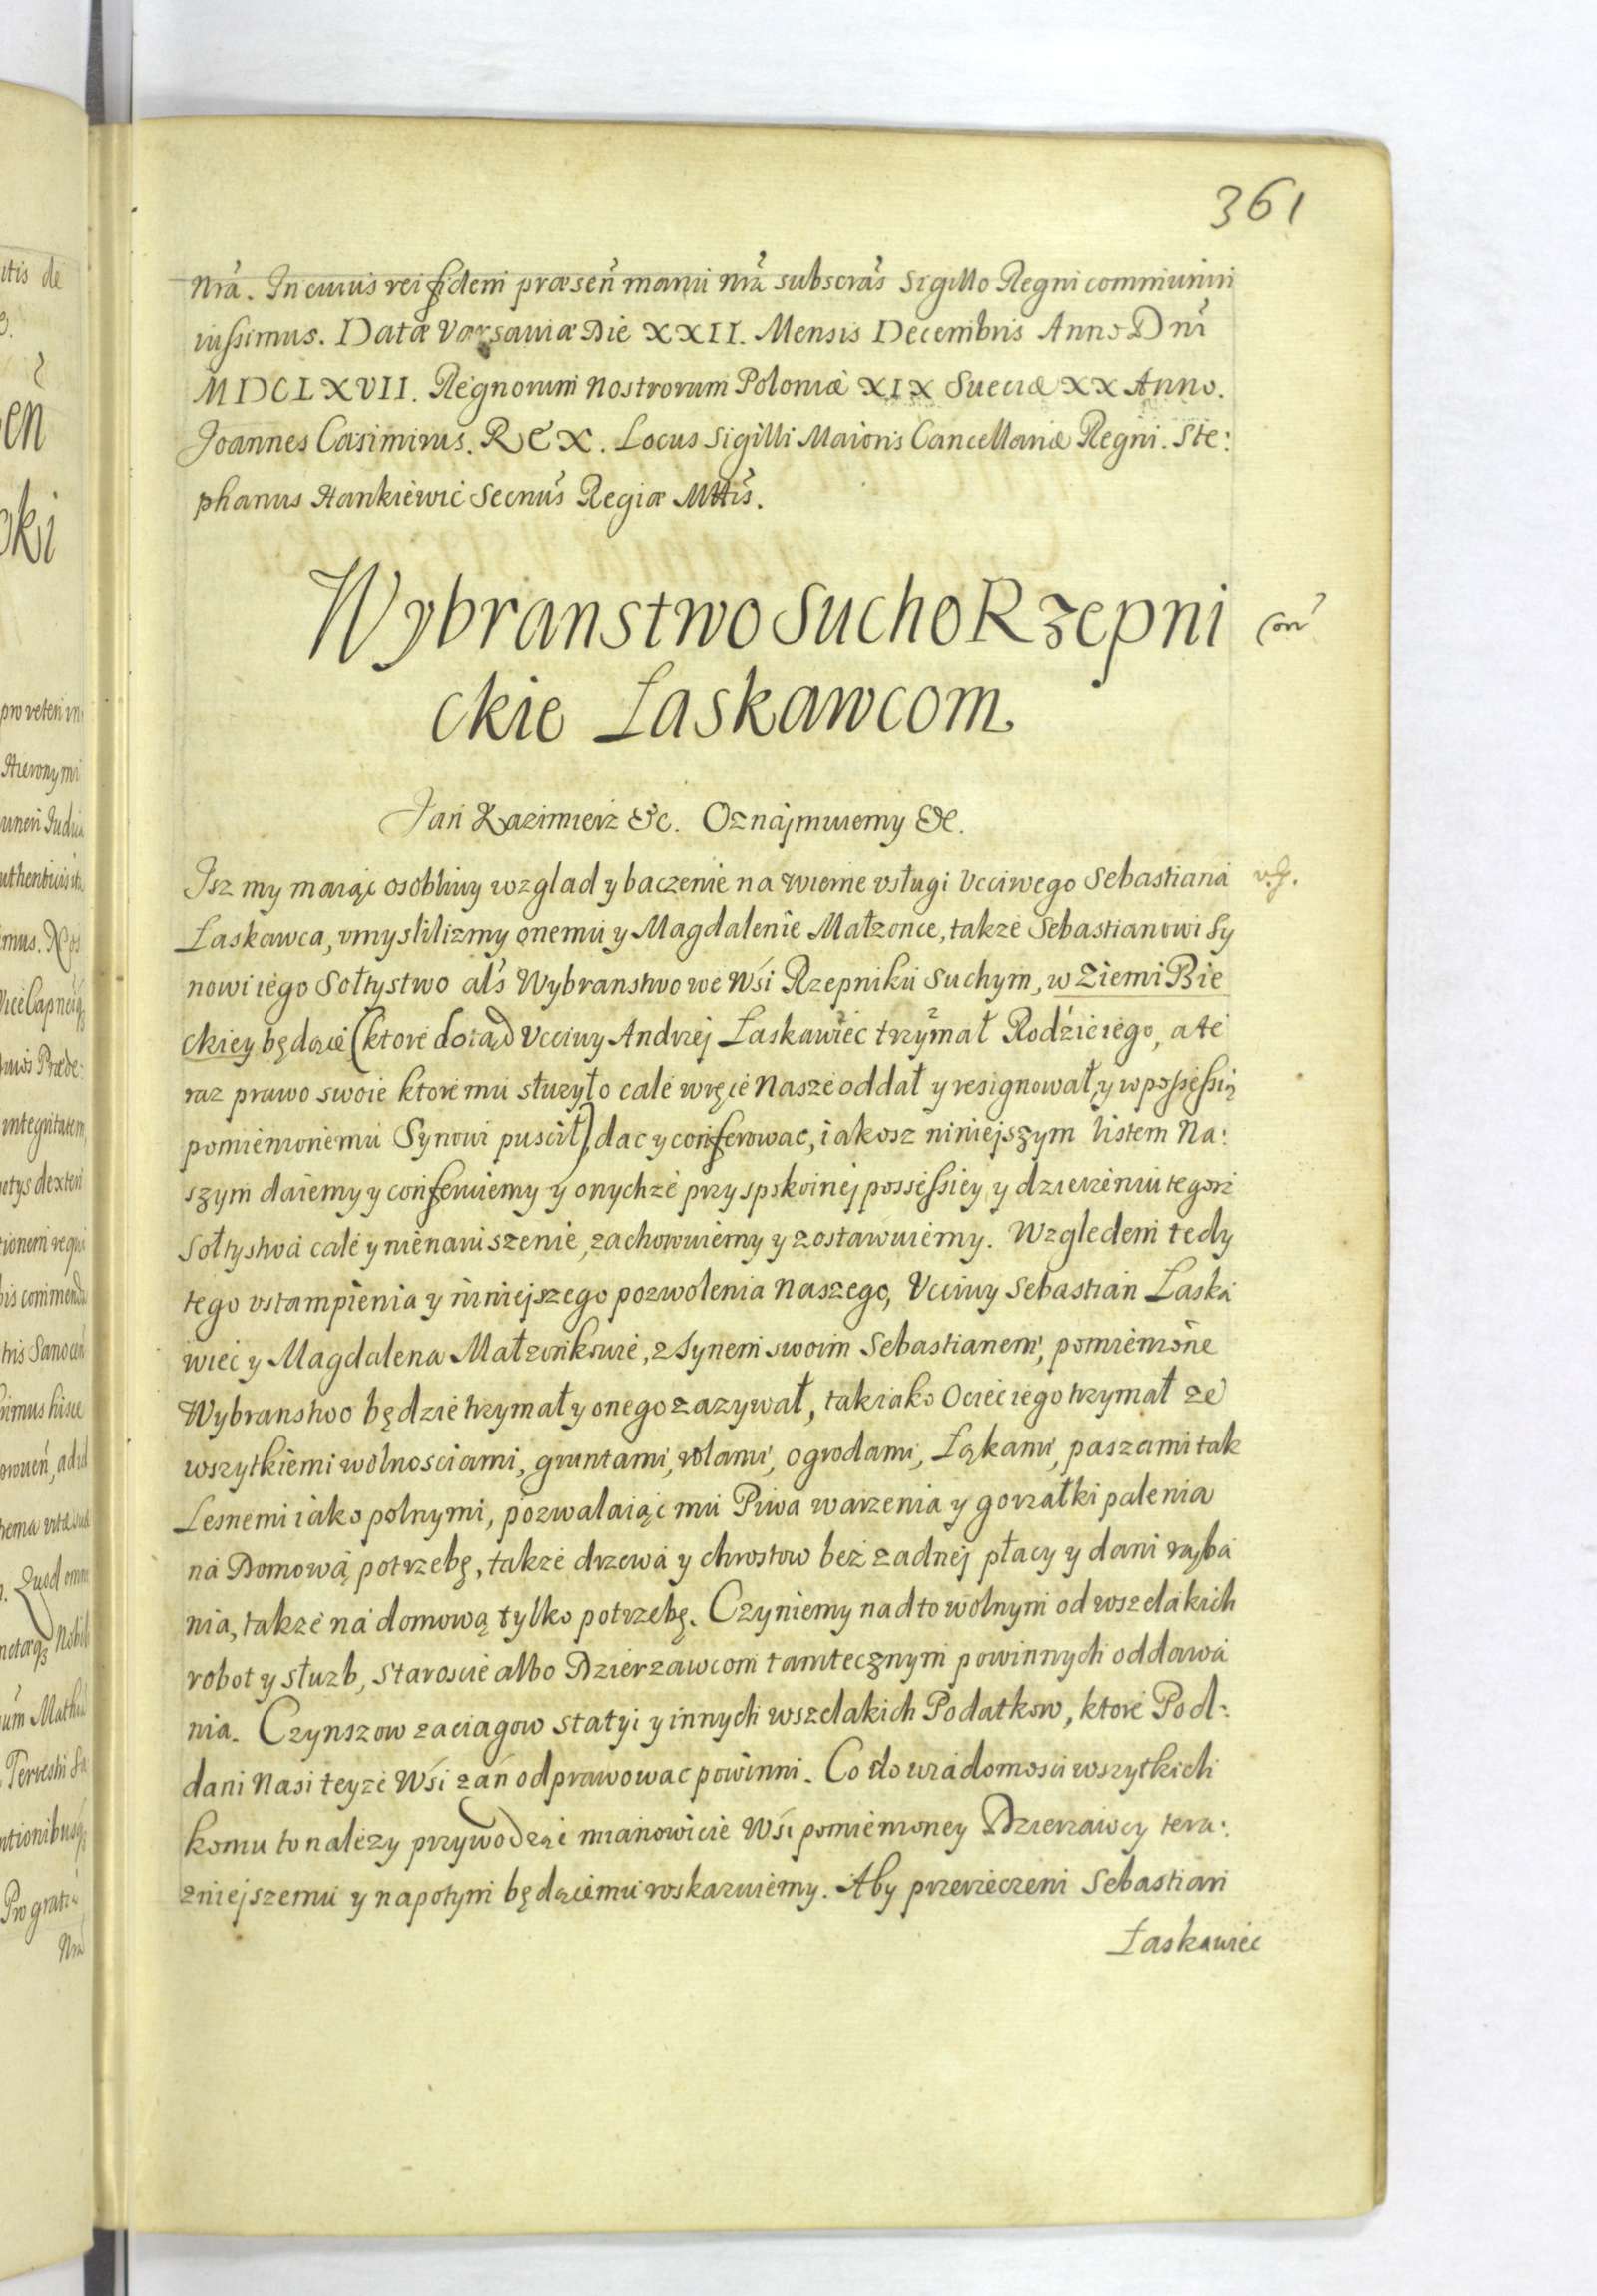 361
Nrã. In cuius rei fidem præsen̄ manu Nrã subscrãs Sigillo Regni communiri
iussimus. Datæ Varsaviæ Die XXII. Mensis Decembris Anno Dnĩ
MDCLXVII. Regnorum Nostrorum Poloniæ XIX Sueciæ XX Anno.
Joannes Casimirus. REX. Locus Sigilli Maioris Cancellariæ Regni. Ste:
phanus Hankiewic Secriũs Regiæ Mttis.
Wybranstwo SuchoRzepni
ckie Laskawcom.
Jan Kazimierz &c. Oznajmuiemy &c.
Isz my maiąc osobliwy wzglad y baczenie na wierne vsługi Vcciwego Sebastiana
Laskawca, vmyslilizmy onemu y Magdalenie Małzonce, takze Sebastianowi Sy
nowi iego Sołtystwo als Wybranstwo we Wsi Rzepniku Suchym, w Ziemi Bie
ckiey będące (ktore dotąd Vcciwy Andrzej Laskawiec trzymał Rodzic iego, a te
raz prawo swoie ktore mu słuzyło cale w ręce Nasze oddał y resignował, y w possessią
pomienionemu Synowi puscił) dac y conferowac, iakosz niniejszym listem Na:
szym daiemy y conferuiemy y onychze przy spokoinej possessiey y dzierzeniu tegoz
Sołtystwa cale y nienaruszenie, zachowuiemy y zostawuiemy. Wzgledem tedy
tego vstampienia y niniejszego pozwolenia Naszego, Vcciwy Sebastian Laska
wiec y Magdalena Małzonkowie, z Synem swoim Sebastianem, pomienione
Wybranstwo będzie trzymał y onego zazywał, tak iako Ociec iego trzymał ze
wszytkiemi wolnosciami, gruntami, rolami, ogrodami, Ląkami, paszami tak
Lesnemi iako polnymi, pozwalaiąc mu Piwa warzenia y gorzałki palenia
na Domową potrzebę, takze drzewa y chrostow bez zadnej płacy y dani rąba
nia, takze na domową tylko potrzebę. Czyniemy nadto wolnym od wszelakich
robot y słuzb, Staroscie albo Dzierzawcom tamtecznym powinnych oddawa
nia. Czynszow zaciagow statyi y innych wszelakich Podatkow, ktore Pod:
dani Nasi teyze Wsi zań odprawowac powinni. Co do wiadomosci wszytkich
komu to nalezy przywodząc mianowicie Wsi pomienioney Dzierzawcy tera:
zniejszemu y napotym będącemu roskazuiemy. Aby przerzeczeni Sebastian
Laskawiec